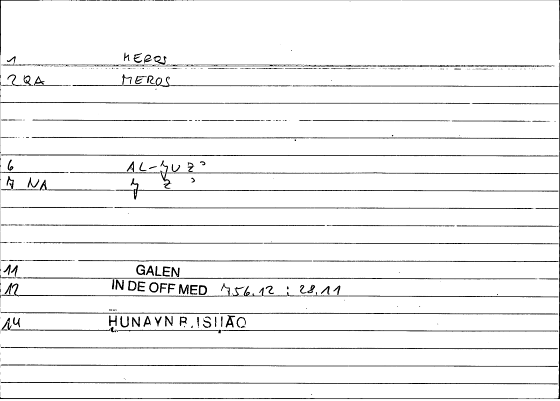 1 MEROS
2 RA MEROS
6 AL-ҔUZʾ
7 NA Ҕ Zʾ
11 GALEN
12 IN DE OFF MED 756.12 : 28.11
14 ḤUNAYN B. ISḤĀQ